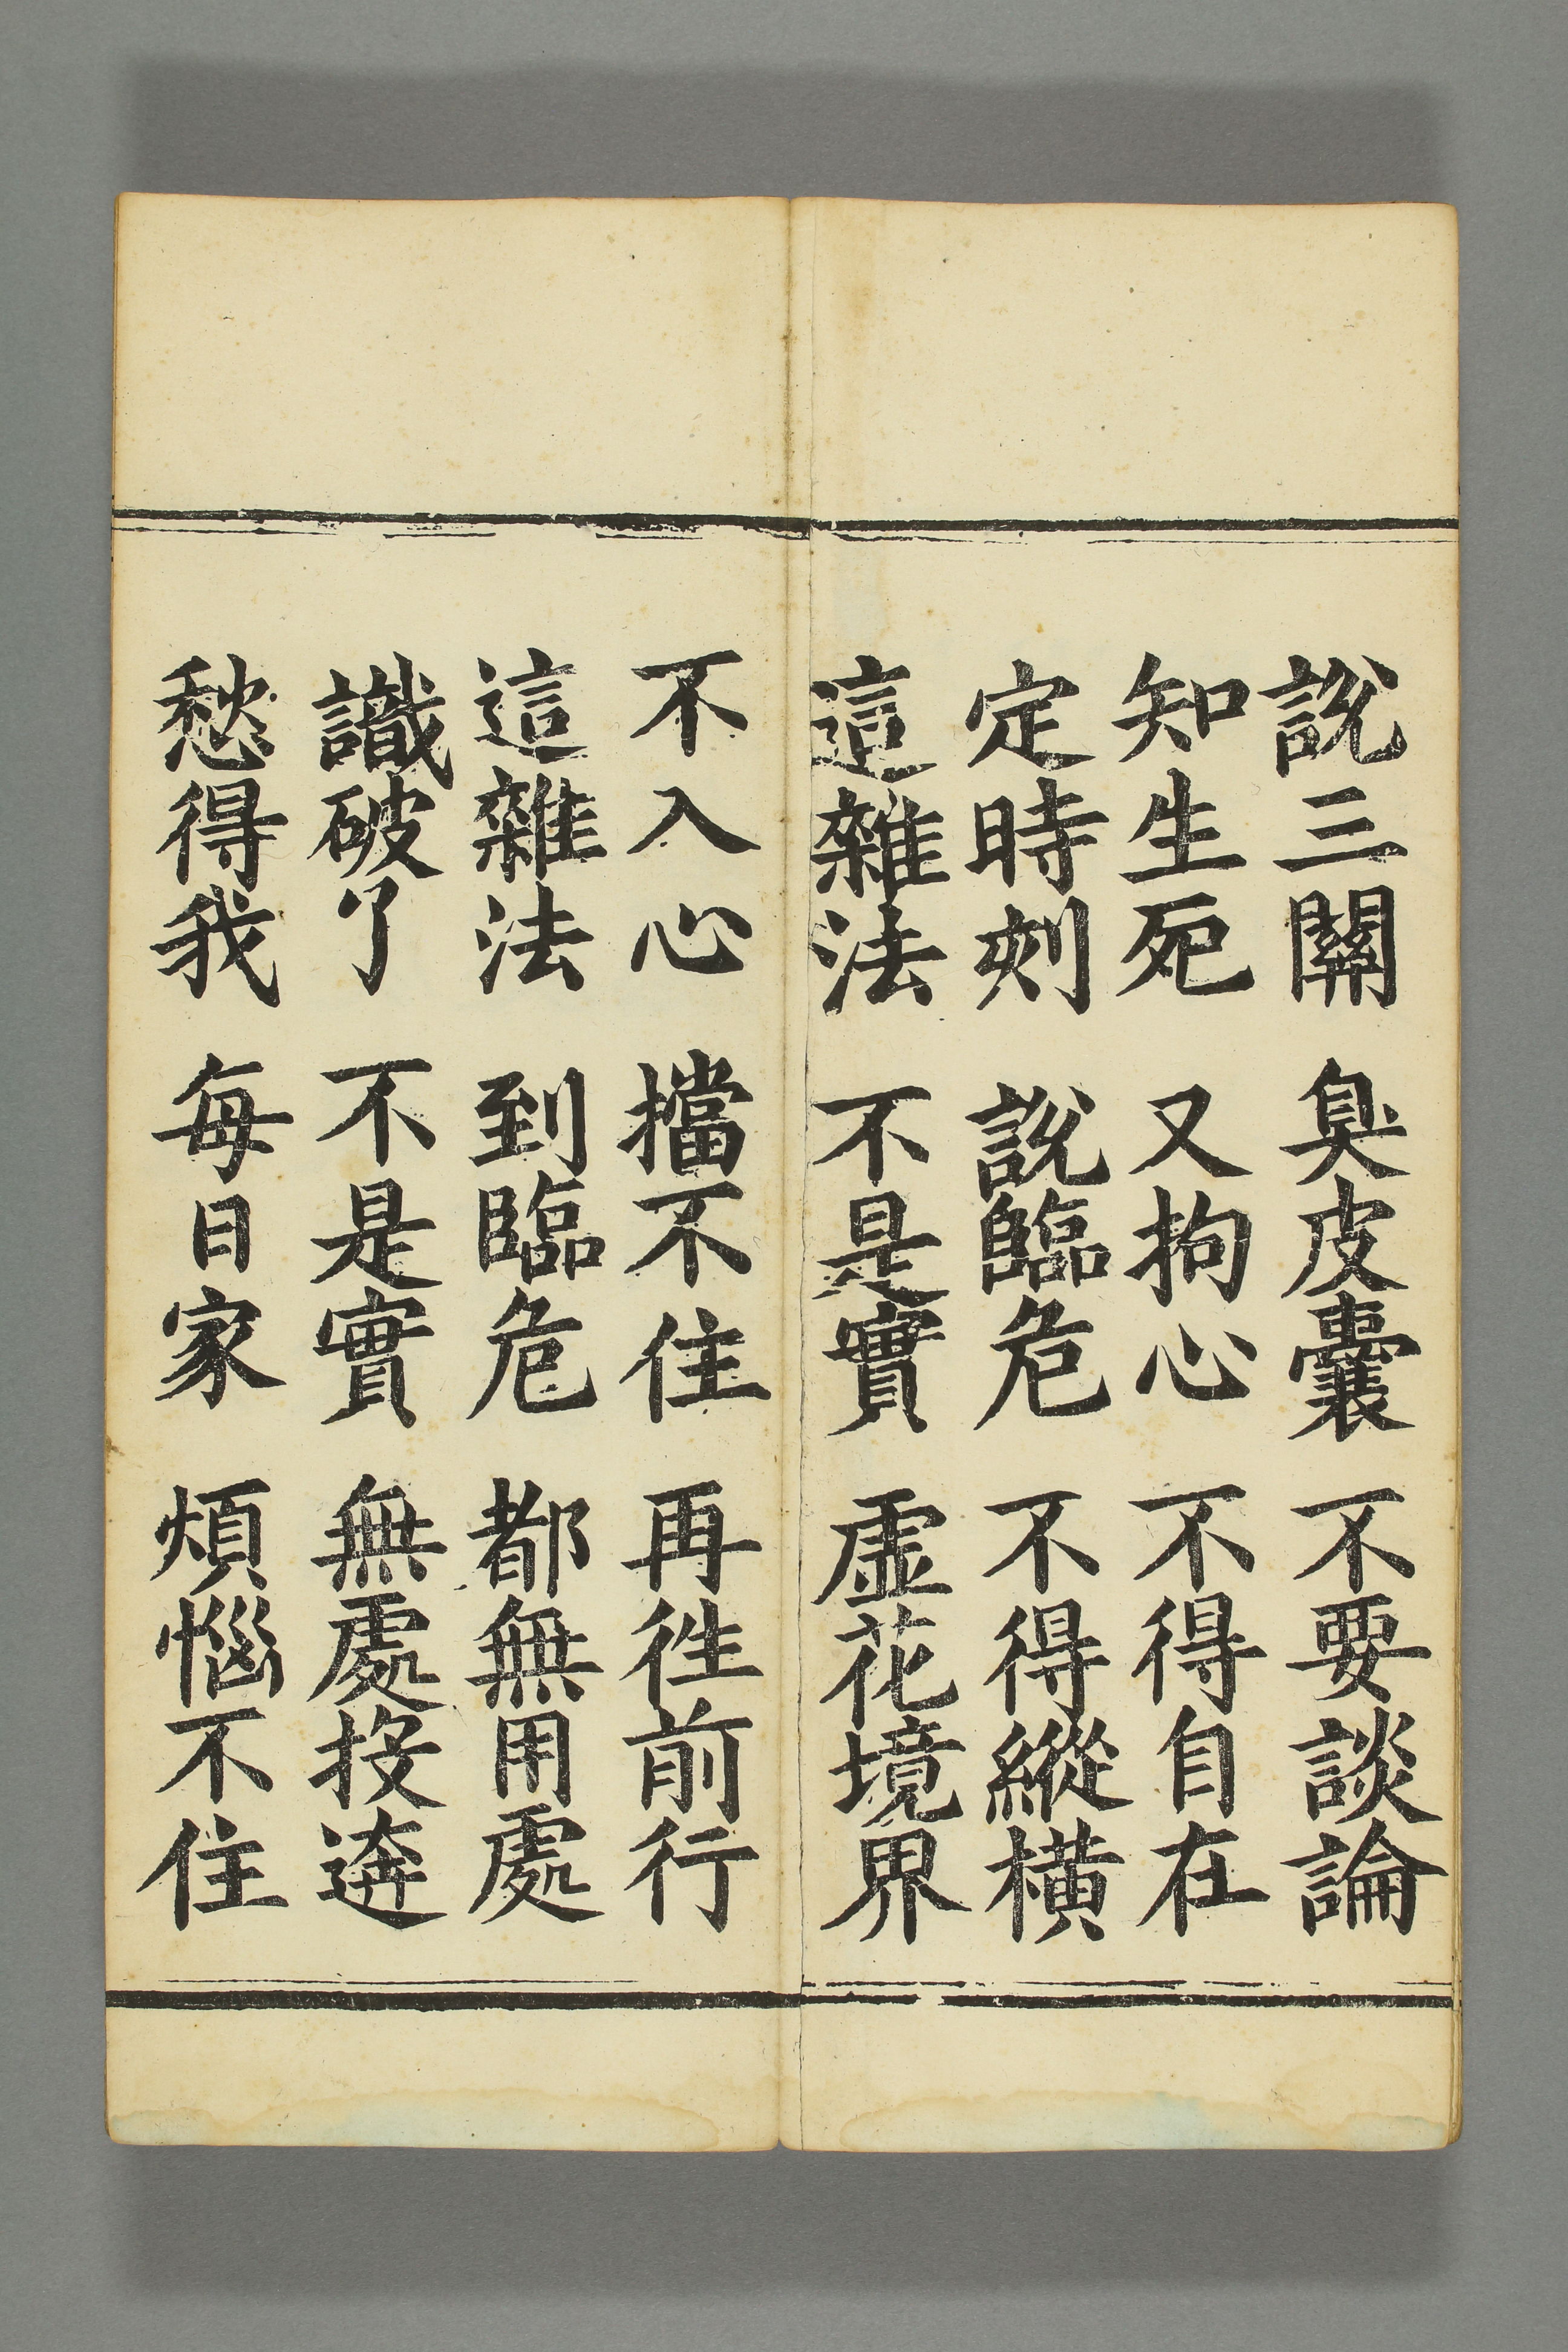 說三關　臭皮囊　不要談論
知生死　又拘心　不得自在
定時刻　說臨危　不得縱橫
這雜法　不是實　虛花境界
不入心　擋不住　再徃前行
這雜法　到臨危　都無用處
識破了　不是實　無處投逩
愁得我　每日家　煩惱不住